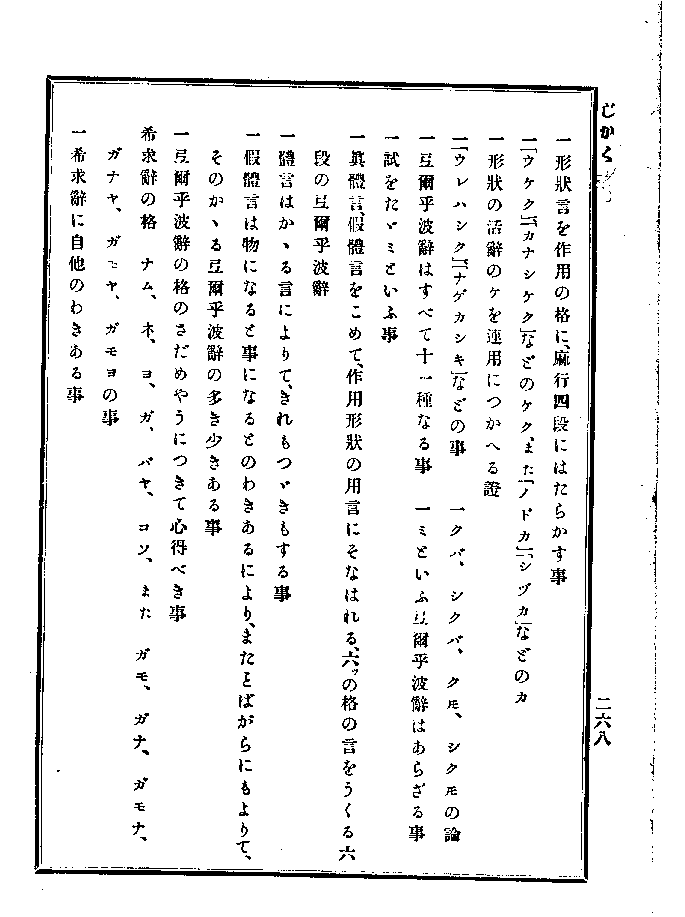 じかく
二六八
一形狀言を作用の格に、麻行四段にはたらかす事
一「ウケク」「カナシケク」などのケク、また「ノドカ」「シヅカ」などのカ
一形狀の活辭のケを連用につかへる證
一「ウレハシク」「ナゲカシキ」などの事　一クバ、シクバ、クモ、シクモの論
一弖爾乎波辭はすべて十一種なる事　一ミといふ弖爾乎波辭はあらざる事
一試をたゞミといふ事
一眞體言、假體言をこめて、作用形狀の用言にそなはれる、六ツの格の言をうくる六
段の弖爾乎波辭
一體言はかゝる言によりて、きれもつゞきもする事
一假體言は物になると事になるとのわきあるにより、またことばがらにもよりて、
そのかゝる弖爾乎波辭の多き少きある事
一弖爾乎波辭の格のさだめやうにつきて心得べき事
希求辭の格　ナム、ネ、ヨ、ガ、バヤ、コソ、また　ガモ、ガナ、ガモナ、
ガナヤ、ガモヤ、ガモヨの事
一希求辭に自他のわきある事